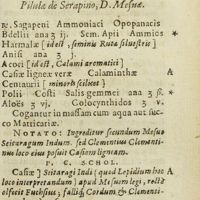 Pilulæ de Serapino, D. Mesuæ.
℞. Sagapeni Ammoniaci Opopanacis
Bdellii ana ʒ ij. Sem. Apii Ammios
Harmalæ [id est, seminis Rutæ siluestris]
Anisi ana ʒ j.
Acori [id est, Calami aromatici]
Casiæ ligneæ veræ Calaminthæ
Centaurii [minoris scilicet]
Polii Costi Salis gemmei ana ʒ ß.
Aloës ʒ vj. Golocynthidos ʒ v.
Cogantur in massam cum aqua aut succo
Matticariæ.
NOTATO: Ingreditur secundum Mesuæ
Seitaragum Indum. sed Clementius Clementi-
nus loco eius posuit Casiam ligneam.
P. C. SCHOL.
Casiæ] Seitaragi Indi; quod Lepidium hoc
loco interpretandum; apud Mesuem legi, recte
olfecit Fuchsius; fallitq; Cordum & Clementi-